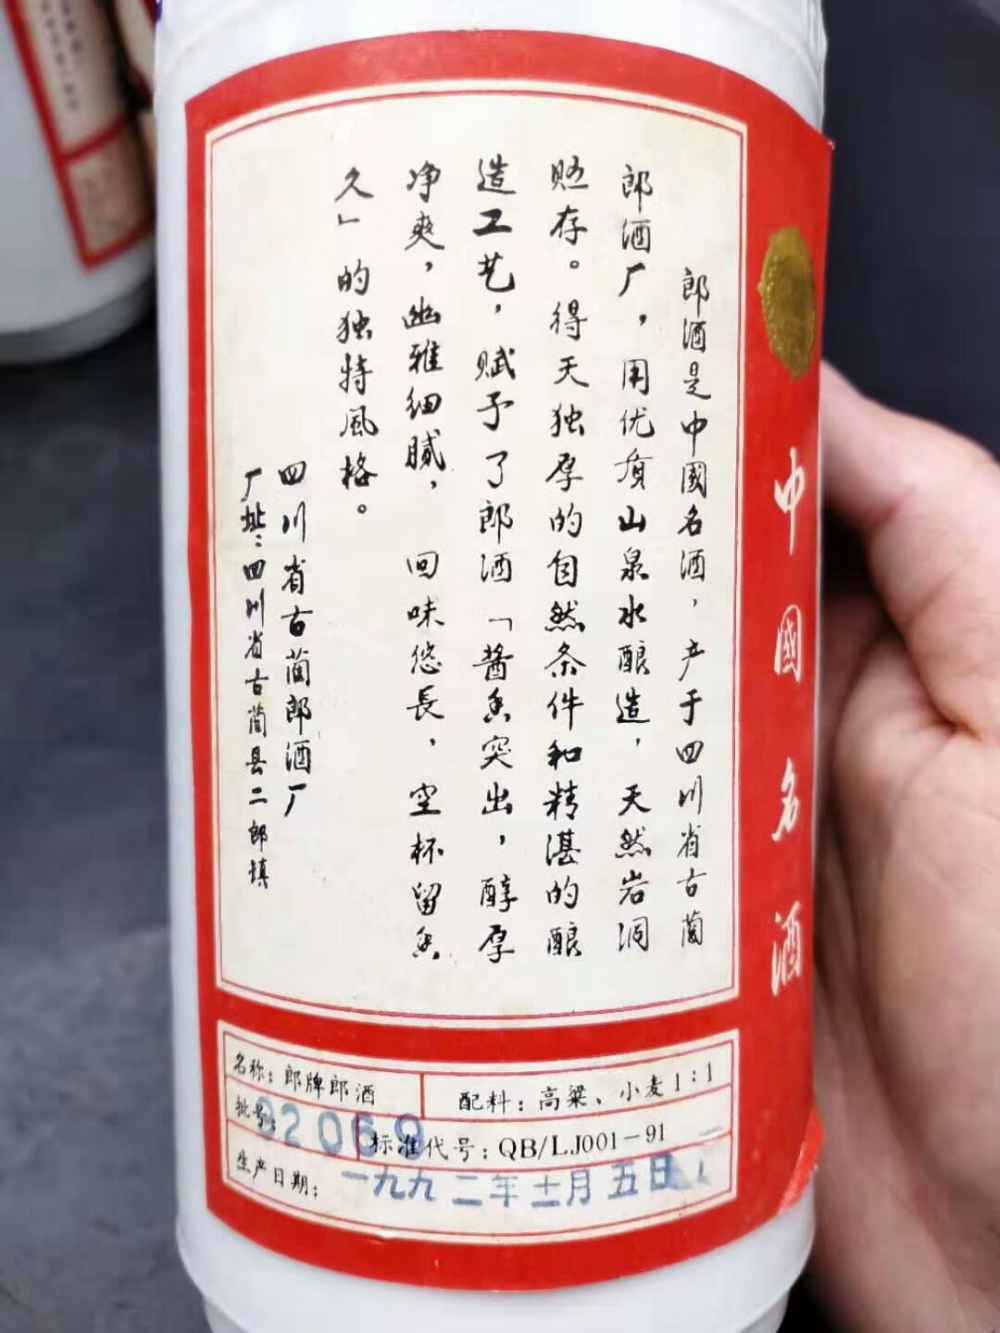 中國名酒
郎酒是中國名酒，产于四川省古蔺
郎酒厂，用优质山泉水酿造，天然岩洞
贮存。得天独厚的自然条件和精湛的酿
造工艺，赋予了郎酒「酱香突出，醇厚
净爽，幽雅细腻，回味悠長，空杯留香
久」的独特風格。
四川省古蔺郎酒厂
厂址：四川省古蔺县二郎镇
名称：郎牌郎酒
配料：高粱、小麦1：1
批号：92069
标准代号：QB/LJ001-91
生产日期：一九九二年十二月五日